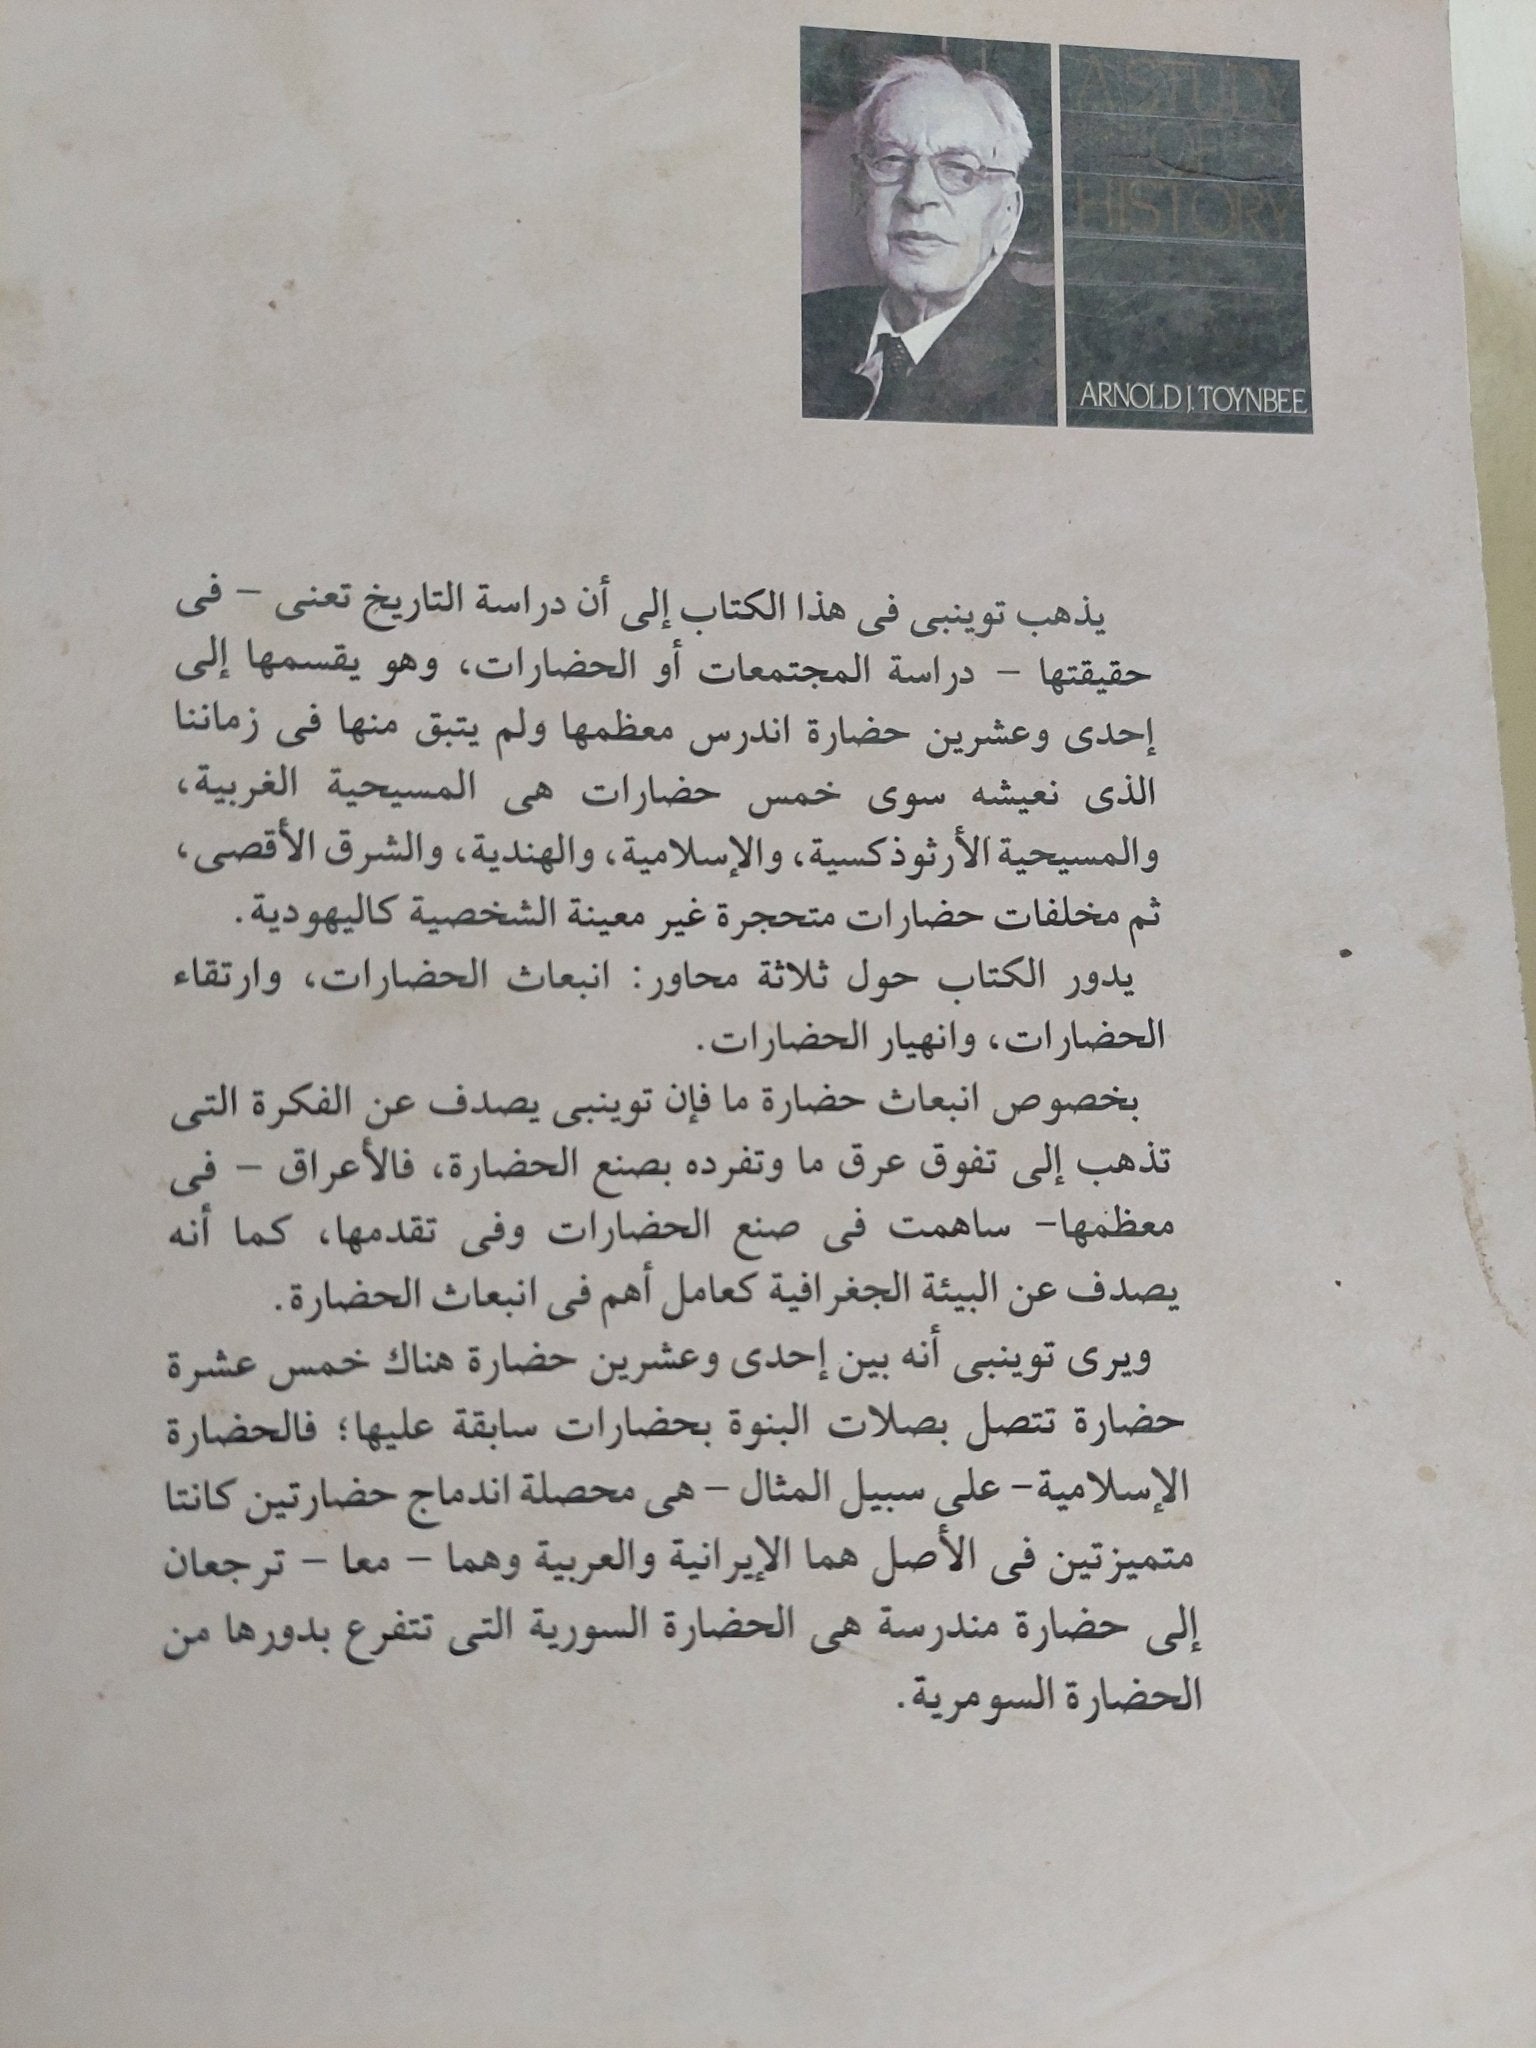 A STUDY
OF
HISTORY
ARNOLD J. TOYNBEE
يذهب توينبى فى هذا الكتاب إلى أن دراسة التاريخ تعنى – فى
حقيقتها – دراسة المجتمعات أو الحضارات، وهو يقسمها إلى
إحدى وعشرين حضارة اندرس معظمها ولم يتبق منها فى زماننا
الذى نعيشه سوى خمس حضارات هى المسيحية الغربية،
والمسيحية الأرثوذكسية، والإسلامية، والهندية، والشرق الأقصى،
ثم مخلفات حضارات متحجرة غير معينة الشخصية كاليهودية.
يدور الكتاب حول ثلاثة محاور: انبعاث الحضارات، وارتقاء
الحضارات، وانهيار الحضارات.
بخصوص انبعاث حضارة ما فإن توينبى يصدف عن الفكرة التى
تذهب إلى تفوق عرق ما وتفرده بصنع الحضارة، فالأعراق – فى
معظمها– ساهمت فى صنع الحضارات وفى تقدمها، كما أنه
يصدف عن البيئة الجغرافية كعامل أهم فى انبعاث الحضارة.
ويرى توينبى أنه بين إحدى وعشرين حضارة هناك خمس عشرة
حضارة تتصل بصلات البنوة بحضارات سابقة عليها؛ فالحضارة
الإسلامية– على سبيل المثال – هى محصلة اندماج حضارتين كانتا
متميزتين فى الأصل هما الإيرانية والعربية وهما – معا – ترجعان
إلى حضارة مندرسة هى الحضارة السورية التى تتفرع بدورها من
الحضارة السومرية.